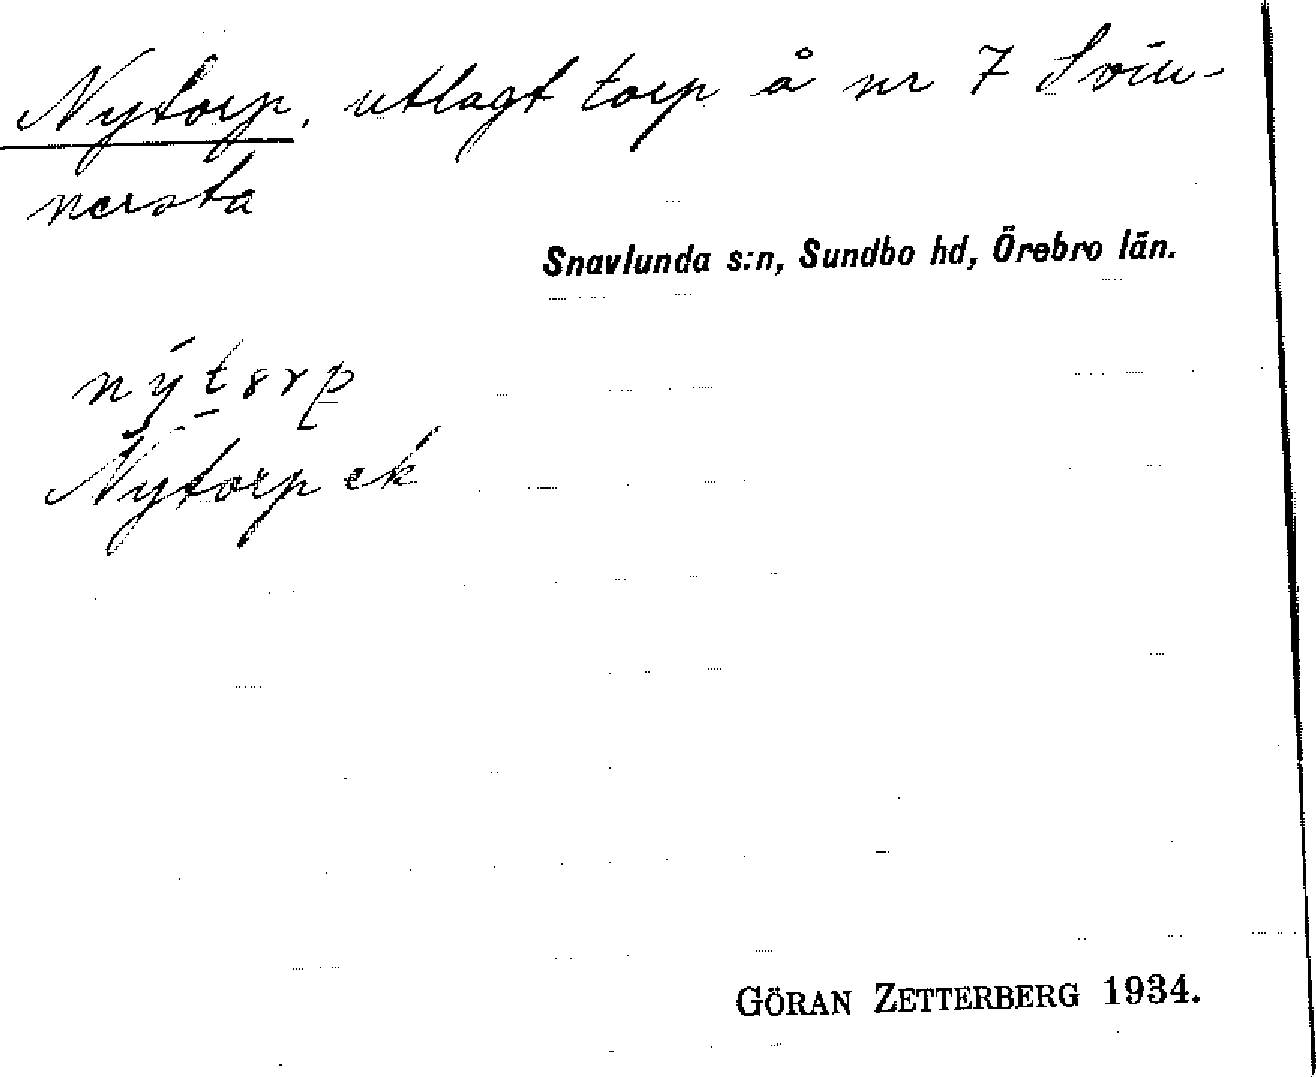 Nytorp, utlagt torp å nr 7 Svin-
nersta
Snavlunda s:n, Sundbo hd, Örebro län.
nýtsrp
Nytorp ek
GÖRAN ZETTERBERG 1934.